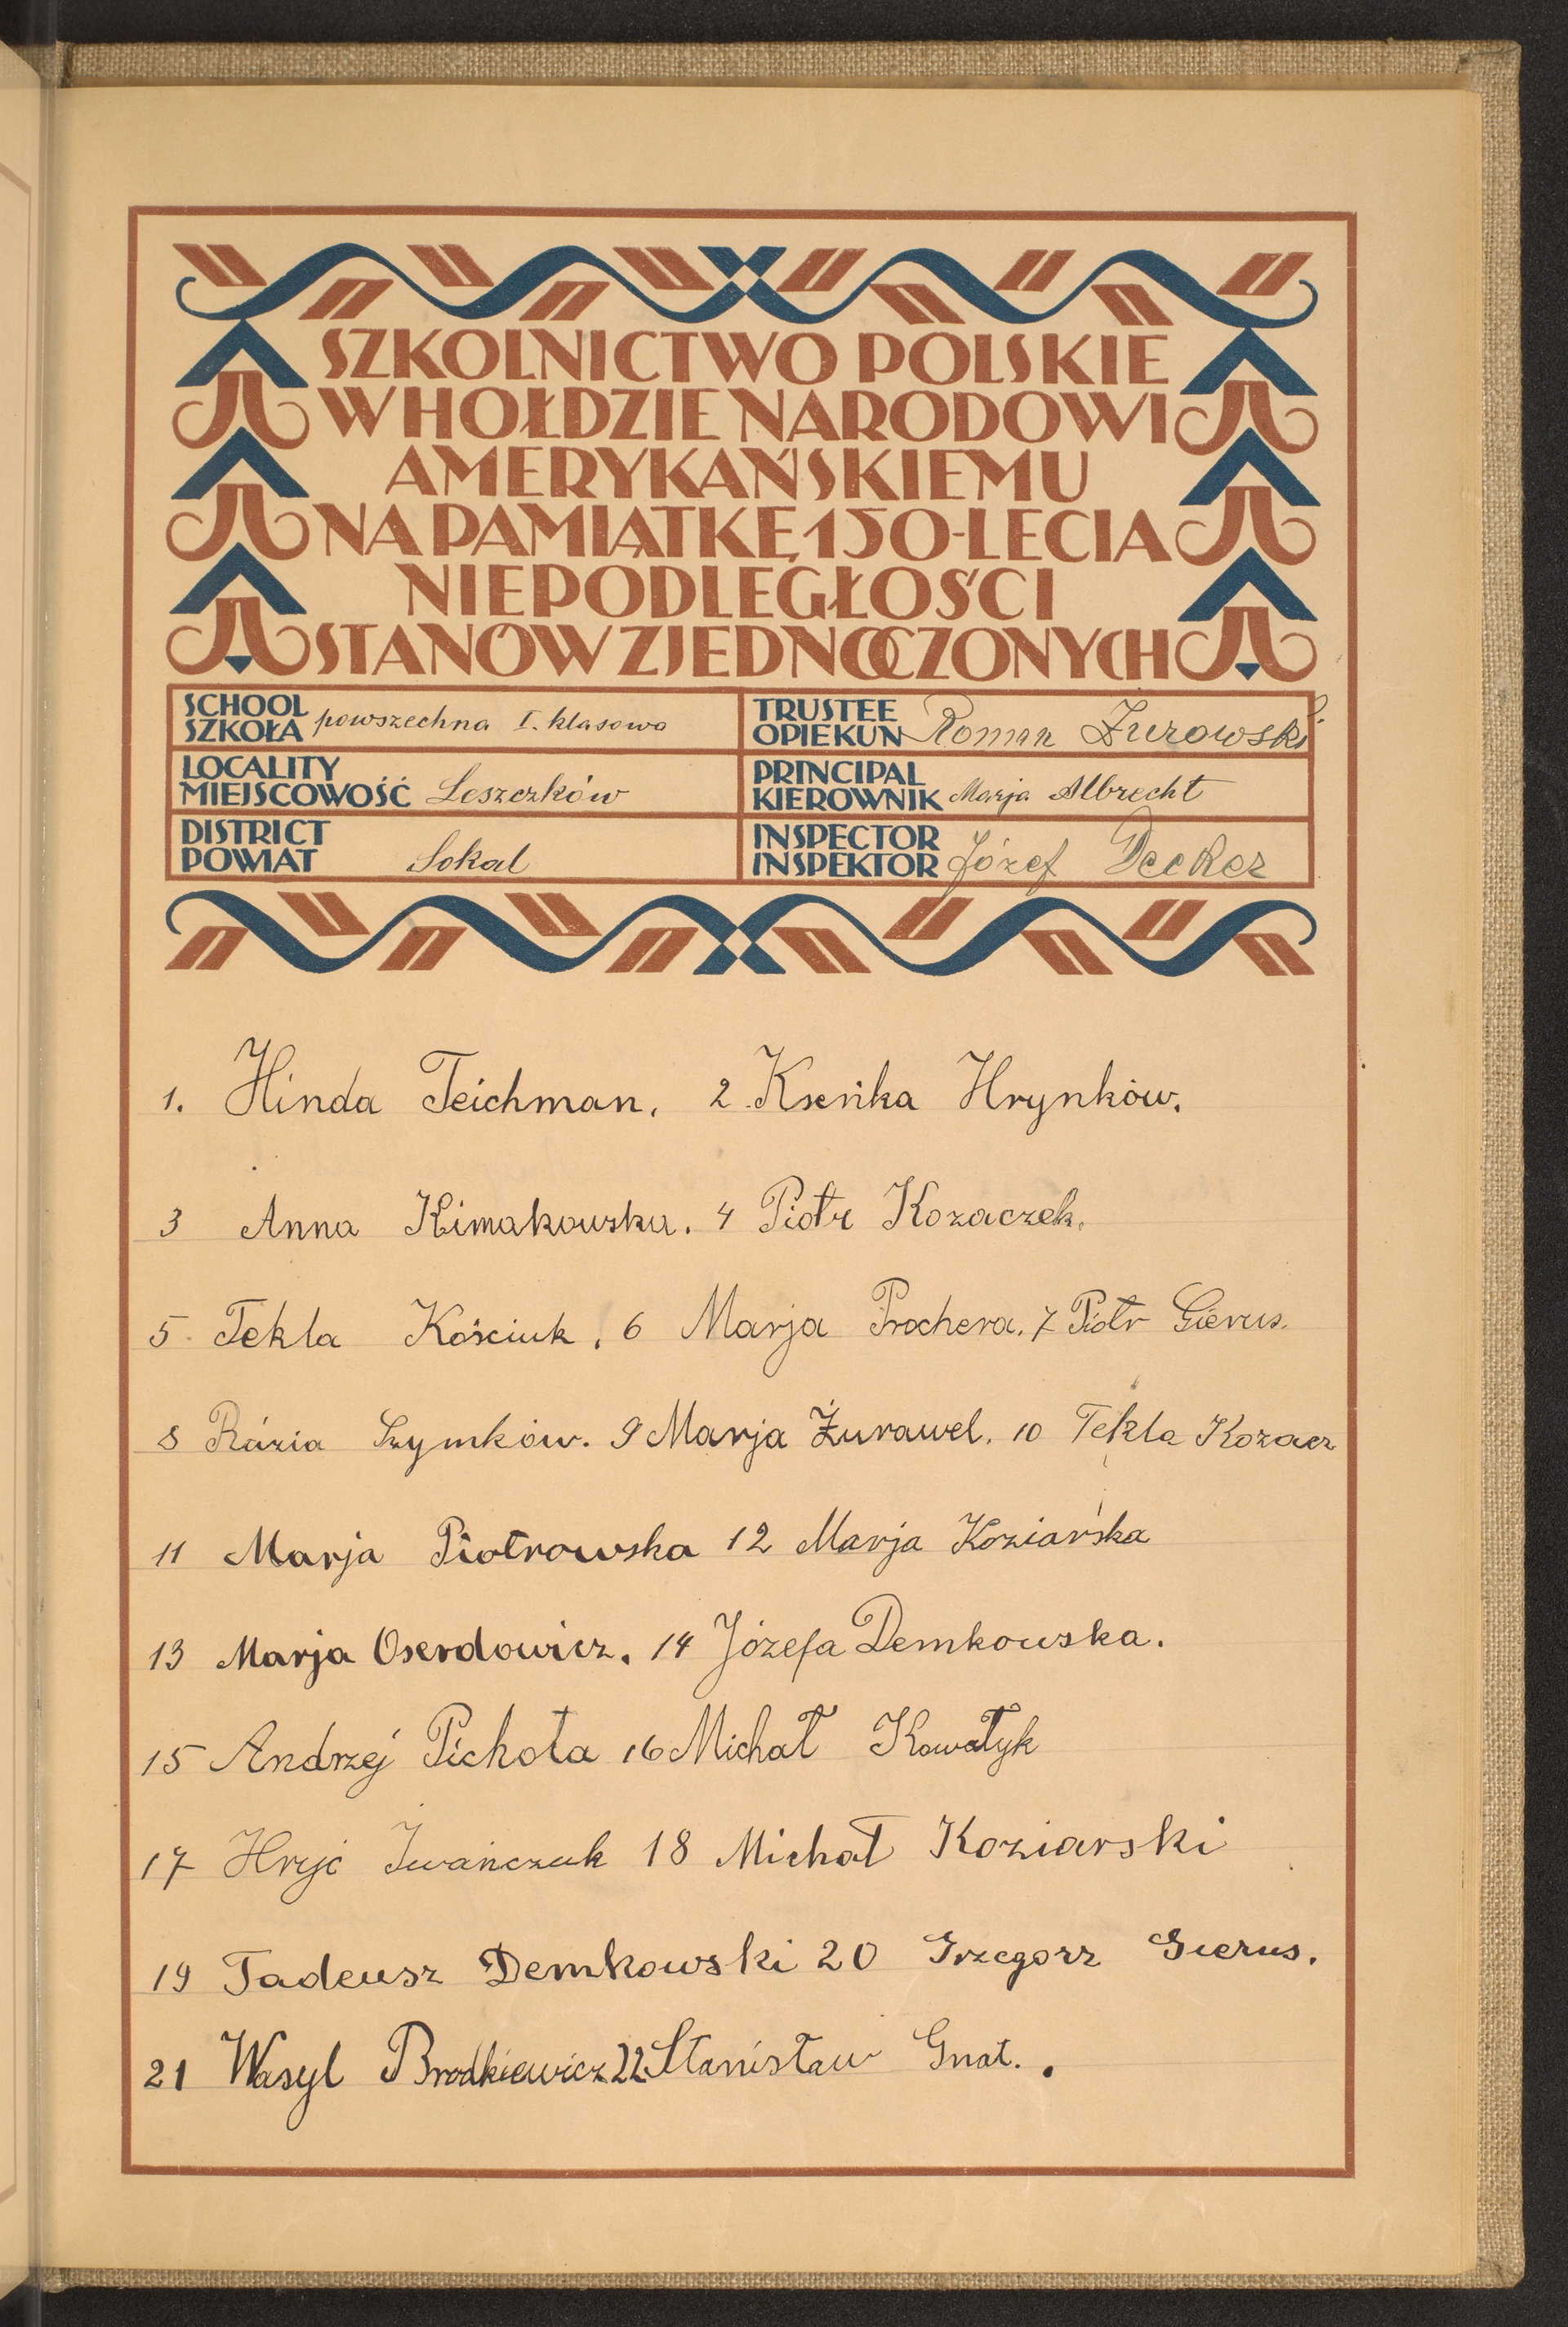 SZKOLNICTWO POLSKIE
W HOŁDZIE NARODOWI
AMERYKAŃSKIEMU
NA PAMIĄTKĘ 150-LECIA
NIEPODLEGŁOŚCI
STANÓW ZJEDNOCZONYCH
SCHOOL
SZKOŁA powszechna I. klasowa
TRUSTEE
OPIEKUN Roman Żurowski
LOCALITY
MIEJSCOWOŚĆ Leszczków
PRINCIPAL
KIEROWNIK Marja Albrecht
DISTRICT
POWIAT Sokal
INSPECTOR
INSPEKTOR Józef Decker
1. Hinda Teichman. 2. Kseńka Hrynków.
3 Anna Kimakowska. 4 Piotr Kozaczek.
5. Tekla Kościuk. 6 Marja Prochera. 7 Piotr Gierus.
8 Rózia Szymków. 9 Marja Żurawel. 10 Tekla Kozacz
11 Marja Piotrowska 12 Marja Koziarska
13 Marja Oserdowicz. 14 Józefa Demkowska.
15 Andrzej Pichota 16 Michał Kowałyk
17 Hryć Iwańczuk 18 Michał Koziarski
19 Tadeusz Demkowski 20 Grzegorz Gierus.
21 Wasyl Brodkiewicz 22 Stanisław Gnat.